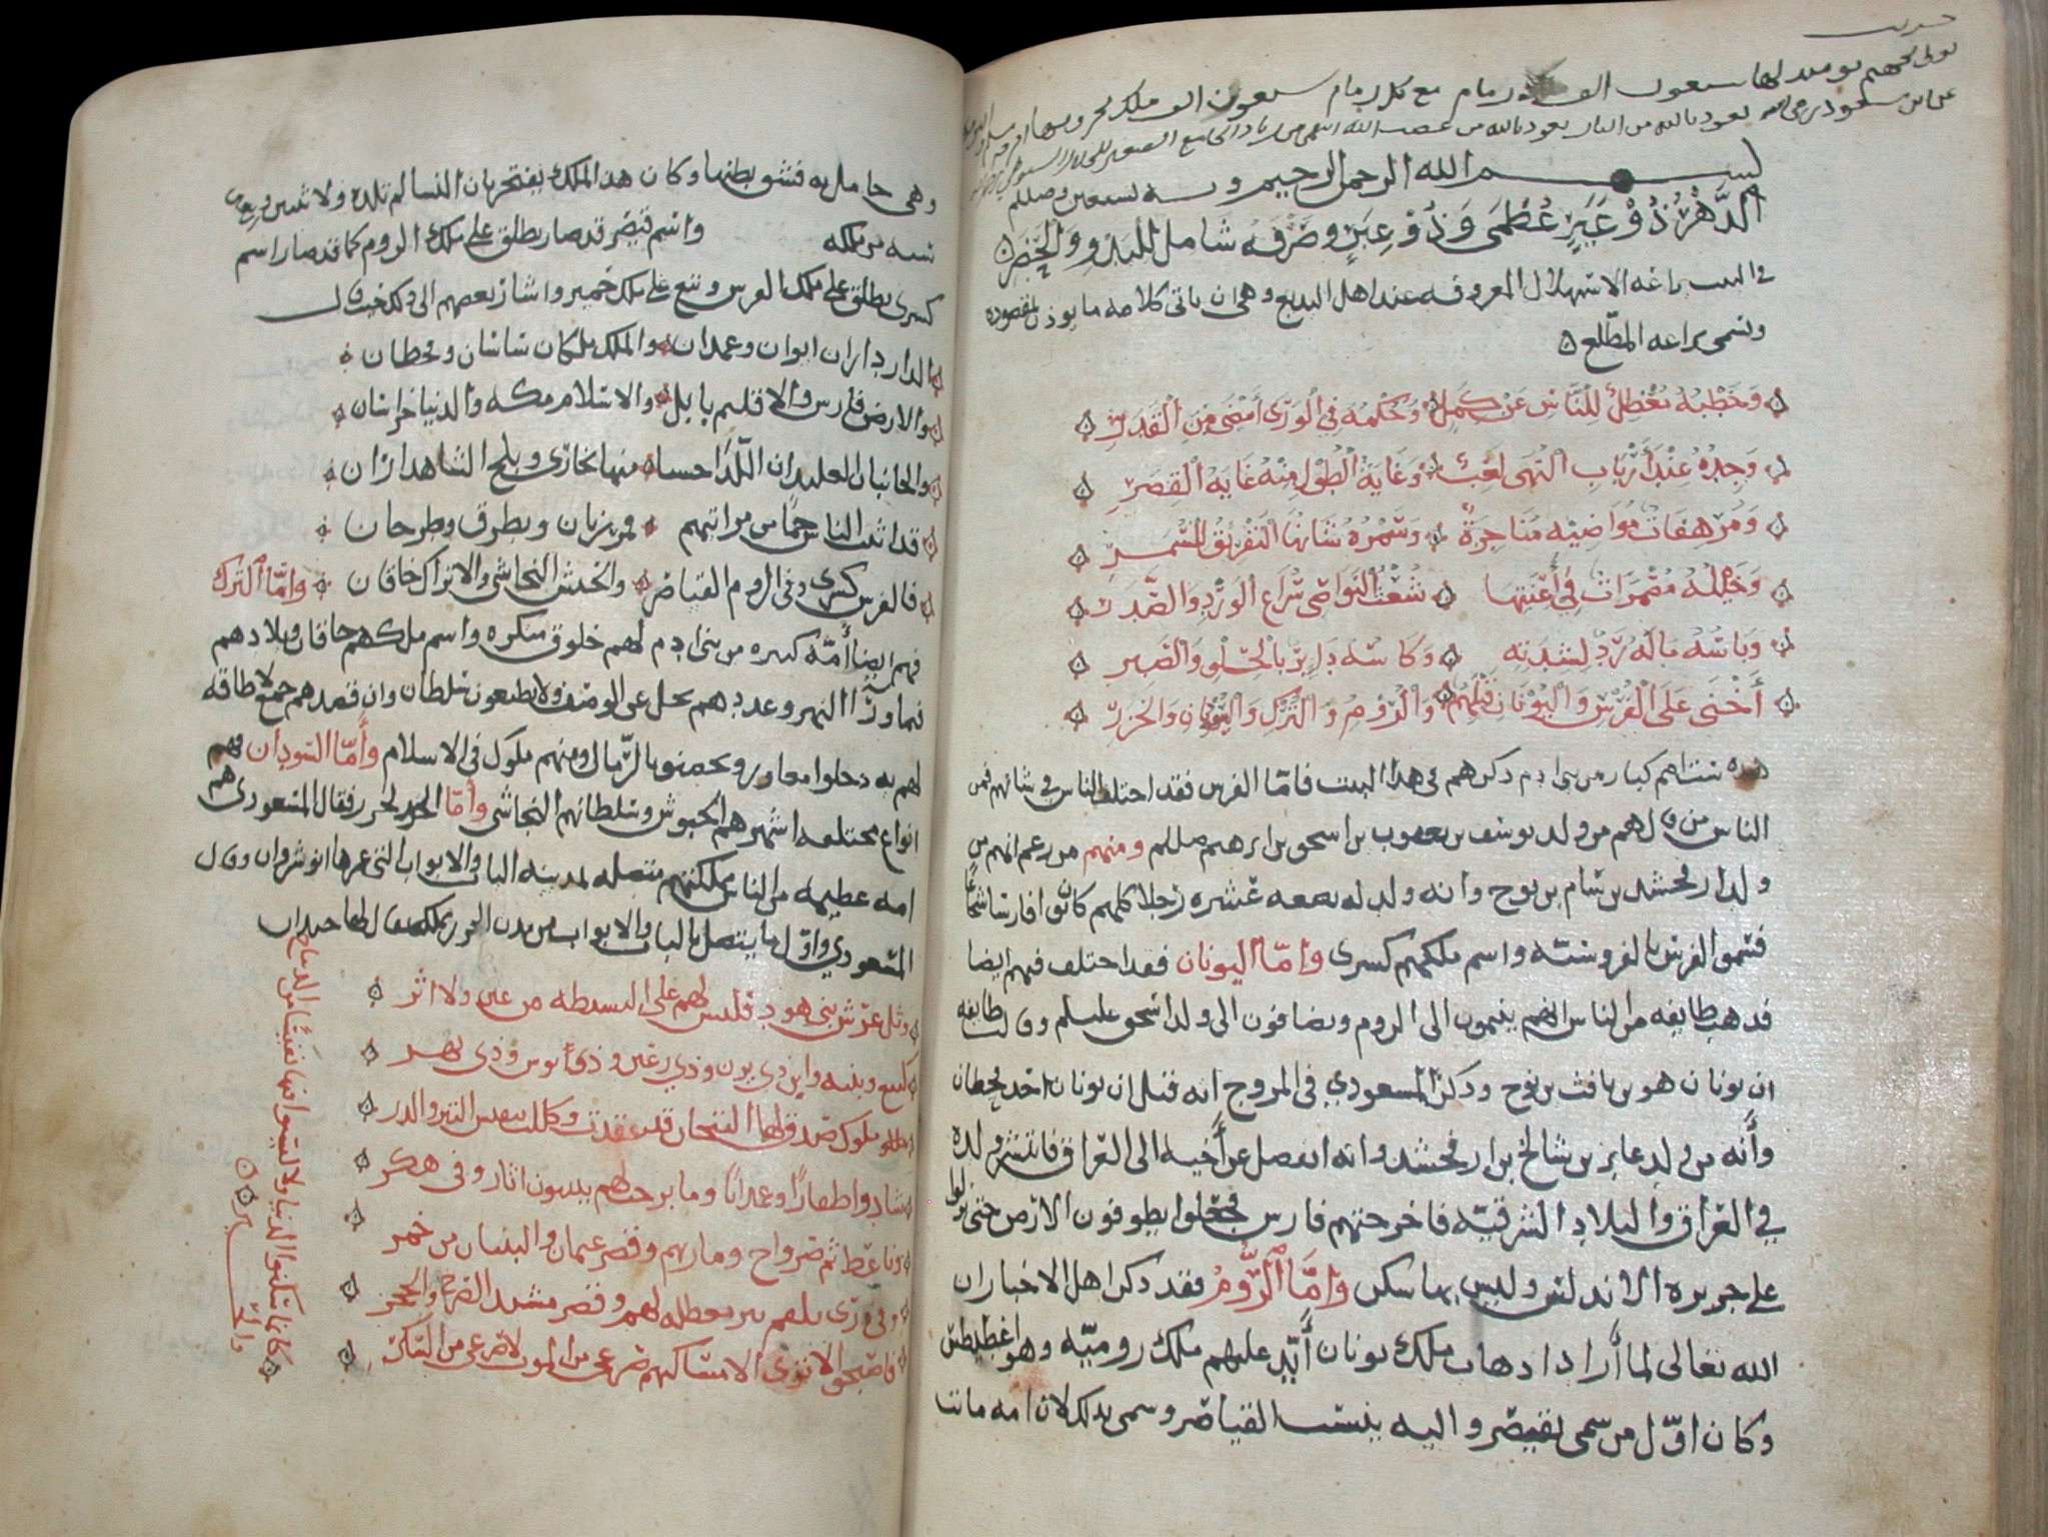 حديث
يومئذ لها سبعون الف زمام مع كل زمام سبعون الف ملك يجرونها
عن ابن مسعود نعوذ بالله من النار نعوذ بالله من غضب الله
بسم الله الرحمن الرحيم وبه نستعين
الدَّهْرُ ذُوْ غِيَرٍ عُظْمَى وَذُوْ عِبَرٍ وَصَرْفُهُ شامل للبَدْوِ وَالحَضَرِ
في البيت براعه الاستهلال المعروفه عند اهل البديع وهي ان ياتي كلامه ما يوذن بمقصوده
وتسمى براعه المطلع
وَخَطْبُهُ للنَّاسِ عَنْ كَمَلٍ وَحُكْمُهُ فِي الْوَرَى أَمْضَى مِنَ الْقَدَرِ
وَجِدُّهُ عِنْدَ أَرْبَابِ النُّهَى لَعِبٌ وَغَايَةُ الطُّوْلِ مِنْهُ غَايَةُ الْقِصَرِ
وَمُرْهَفَاتُ مَوَاضِيْهِ وَسُمْرُهُ شَانُهَا التَّفْرِيْقُ لِلسَّمَرِ
وَخَيْلُهُ مُضْمَرَاتٌ فِي أَعِنَّتِهَا شُعْثُ النَّوَاصِي سِرَاعُ الْوِرْدِ وَالصَّدَرِ
وَبَاسُهُ مَالَهُ رَدٌّ لِشِدَّتِهِ وَكَاسُهُ دَايِرٌ بِالْحُلْوِ وَالصَّبِرِ
أَخْنَى عَلَى الْفُرْسِ وَالْيُوْنَانِ قَبْلَهُمُ وَالرُّوْمِ وَالتُّرْكِ وَالنُّوْبَانِ وَالْخَزَرِ
هذه ستة امم كبار من بني ادم ذكرهم في هذا البيت فامّا الفرس فقد اختلف الناس في شانهم فمن
الناس من قال هم من ولد يوسف بن يعقوب بن اسحق بن ابرهيم صللم ومنهم من زعم انهم من
ولد ارفخشد بن سام بن نوح وانه ولد له بضعه عشره رجلا كلهم كانوا فارسا شجاعا
فسموا الفرس بالفروسيّه واسم ملكهم كسرى وامّا اليونان فقد اختلف فيهم ايضا
فذهب طايفه من الناس انهم ينتمون الى الروم ويضافون الى ولد اسحق عليلم وقالت طايفه
ان يونان هو بن يافث بن نوح وذكر المسعودي في المروج انه قيل ان يونان اخو قحطان
وأنّه من ولد عابر بن شالخ بن ارفخشد وانه انفصل عن أخيه الى العراق فانتشر ولده
في العراق والبلاد الشرقيّه فاخرجتهم فارس فجعلوا يطوفون الارض حتى نزلوا
على جزيره الاندلس وليس بها ساكن وامَّا الرُّومُ فقد ذكر اهل الاخبار ان
الله تعالى لما أراد اذهاب ملك يونان أيّد عليهم ملك روميّه وهو اغطيطس
وكان اوّل من سمى بقيصر واليه ينسب القياصر وسمى بذلك لان امه ماتت
وهي حامل به فشق بطنها وكان هذا الملك يفتخر بان النسا لم تلده ولاثنين واربعين
سنه من ملكه واسم قيصر قد صار يطلق على ملك الروم كما قد صار اسم
كسرى يطلق على ملك الفرس وتبع على ملك حمير واشار بعضهم الى ذلك حيث قال
الدار داران ايوان وغمدان والملك ملكان ساسان وقحطان
والارض فارس والاقليم بابل والاسلام مكه والدنيا خراسان
والجانبان العليدان اللّذا حسنا منها بخارى وبلخ الشاهداران
قد اثبت الناس من مراتبهم فمرزبان وبطرق وطرخان
فالفرس كسرى وفي الروم القياصر والحبش النجاشي والاتراك خاقان وامّا التُرك
فهم ايضا أمّه كبيره من بني ادم لهم خلوق منكره واسم ملكهم خاقان وبلادهم
فيما ورآ النهر وعددهم يجل عن الوصف ولا يطيعون سلطان وان قصدهم جمع لا طاقه
لهم به دخلوا مفاوز وتحصنوا بالرّمال ومنهم ملوك في الاسلام وأمّا السّودان فهم
انواع مختلفه اشهرهم الحبوش وسلطانهم النجاشي وأمّا الخزر فقال المسعودي هم
امه عظيمه من الناس مملكتهم متصله بمدينه الباب والابواب التي عمرها انوشروان وقال
المسعودي واوّل ما يتصل بالباب والابواب من مدن الخزر مملكه يقال لها خيدان
وثل عرش بني هود فليس لهم على البسيطه من عين ولا اثر
كتبع وبنيه وابن ذي يزن وذي رعين وذي نواس وذي
ملوك صدق لها التيجان قد عقدت وكللت بنفيس التبر والدر
شادوا ظفارًا وغمدانًا وما برحت لهم ببينون اثار وفي هكر
وناعط ثم صرواح ومارب وقصر غيمان والبنيان من خمر
وفي ذرى تلفم بير معطله لهم وقصر مشيد الصرح والحجر
فاصبحوا لا ترى الا مساكنهم صرعى من الموت لا صرعى من السكر
كانما سكنوا الدنيا ولا لبسوا فيها نفيسًا من الديباج
والحبر